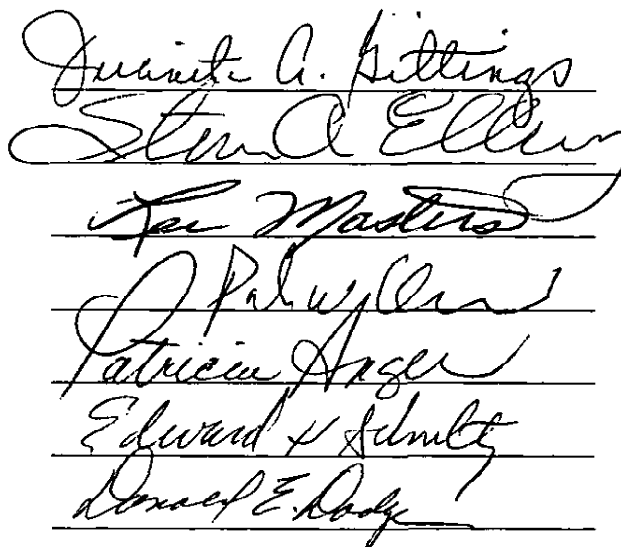 Juanita A. Gittings
Steven A Ellis
Rae Masters
Patricia Anger
Edward H Schultz
Donald E. Dodge